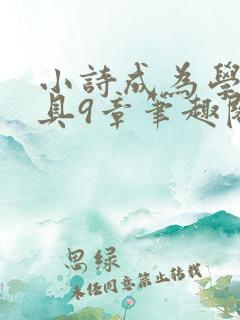 小詩成為學
具9章筆趣閣
思绿
未经同意禁止转载